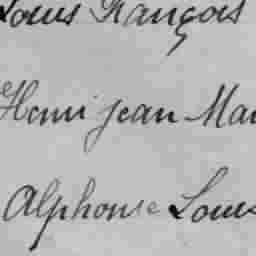 Louis François
Henri Jean Mar
Alphonse Louis